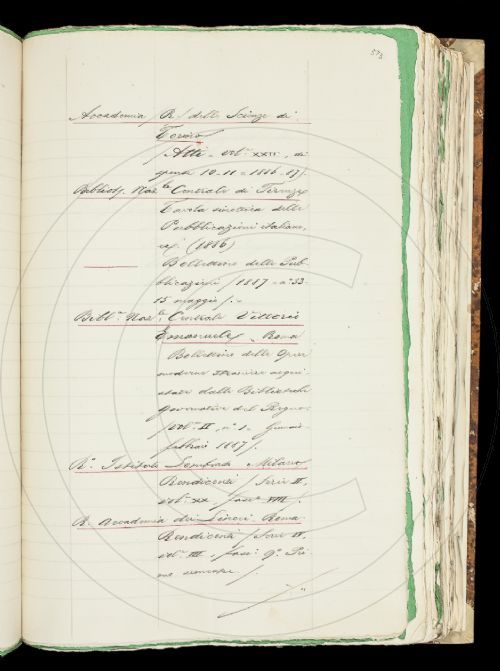 573
Accademia R. delle Scienze di
Torino
/ Atti - vol.º XXII, di
spensa 10-11 = 1886-87).
Bibliot. Naz.le Centrale di Firenze
Tavola sinottica delle
Pubblicazioni italiane,
(1886)
Bollettino delle Pub-
blicazioni / 1887 - nº 33-
15 maggio /. -
Bibl.ª Naz.le Centrale Vittorio
Emanuele - Roma
Bollettino delle Opere
moderne straniere acqui-
state dalle Biblioteche
governative del Regno:
/ vol.º II, nº 1 - Gennaio
febbraio 1887 /.
R.º Istituto Lombardo - Milano
Rendiconti / Serie II,
vol.º XX, fasc.º VIII /.
R. Accademia dei Lincei - Roma
Rendiconti / Serie IV,
vol.º III, fasc. 9º Pri
mo semestre /.